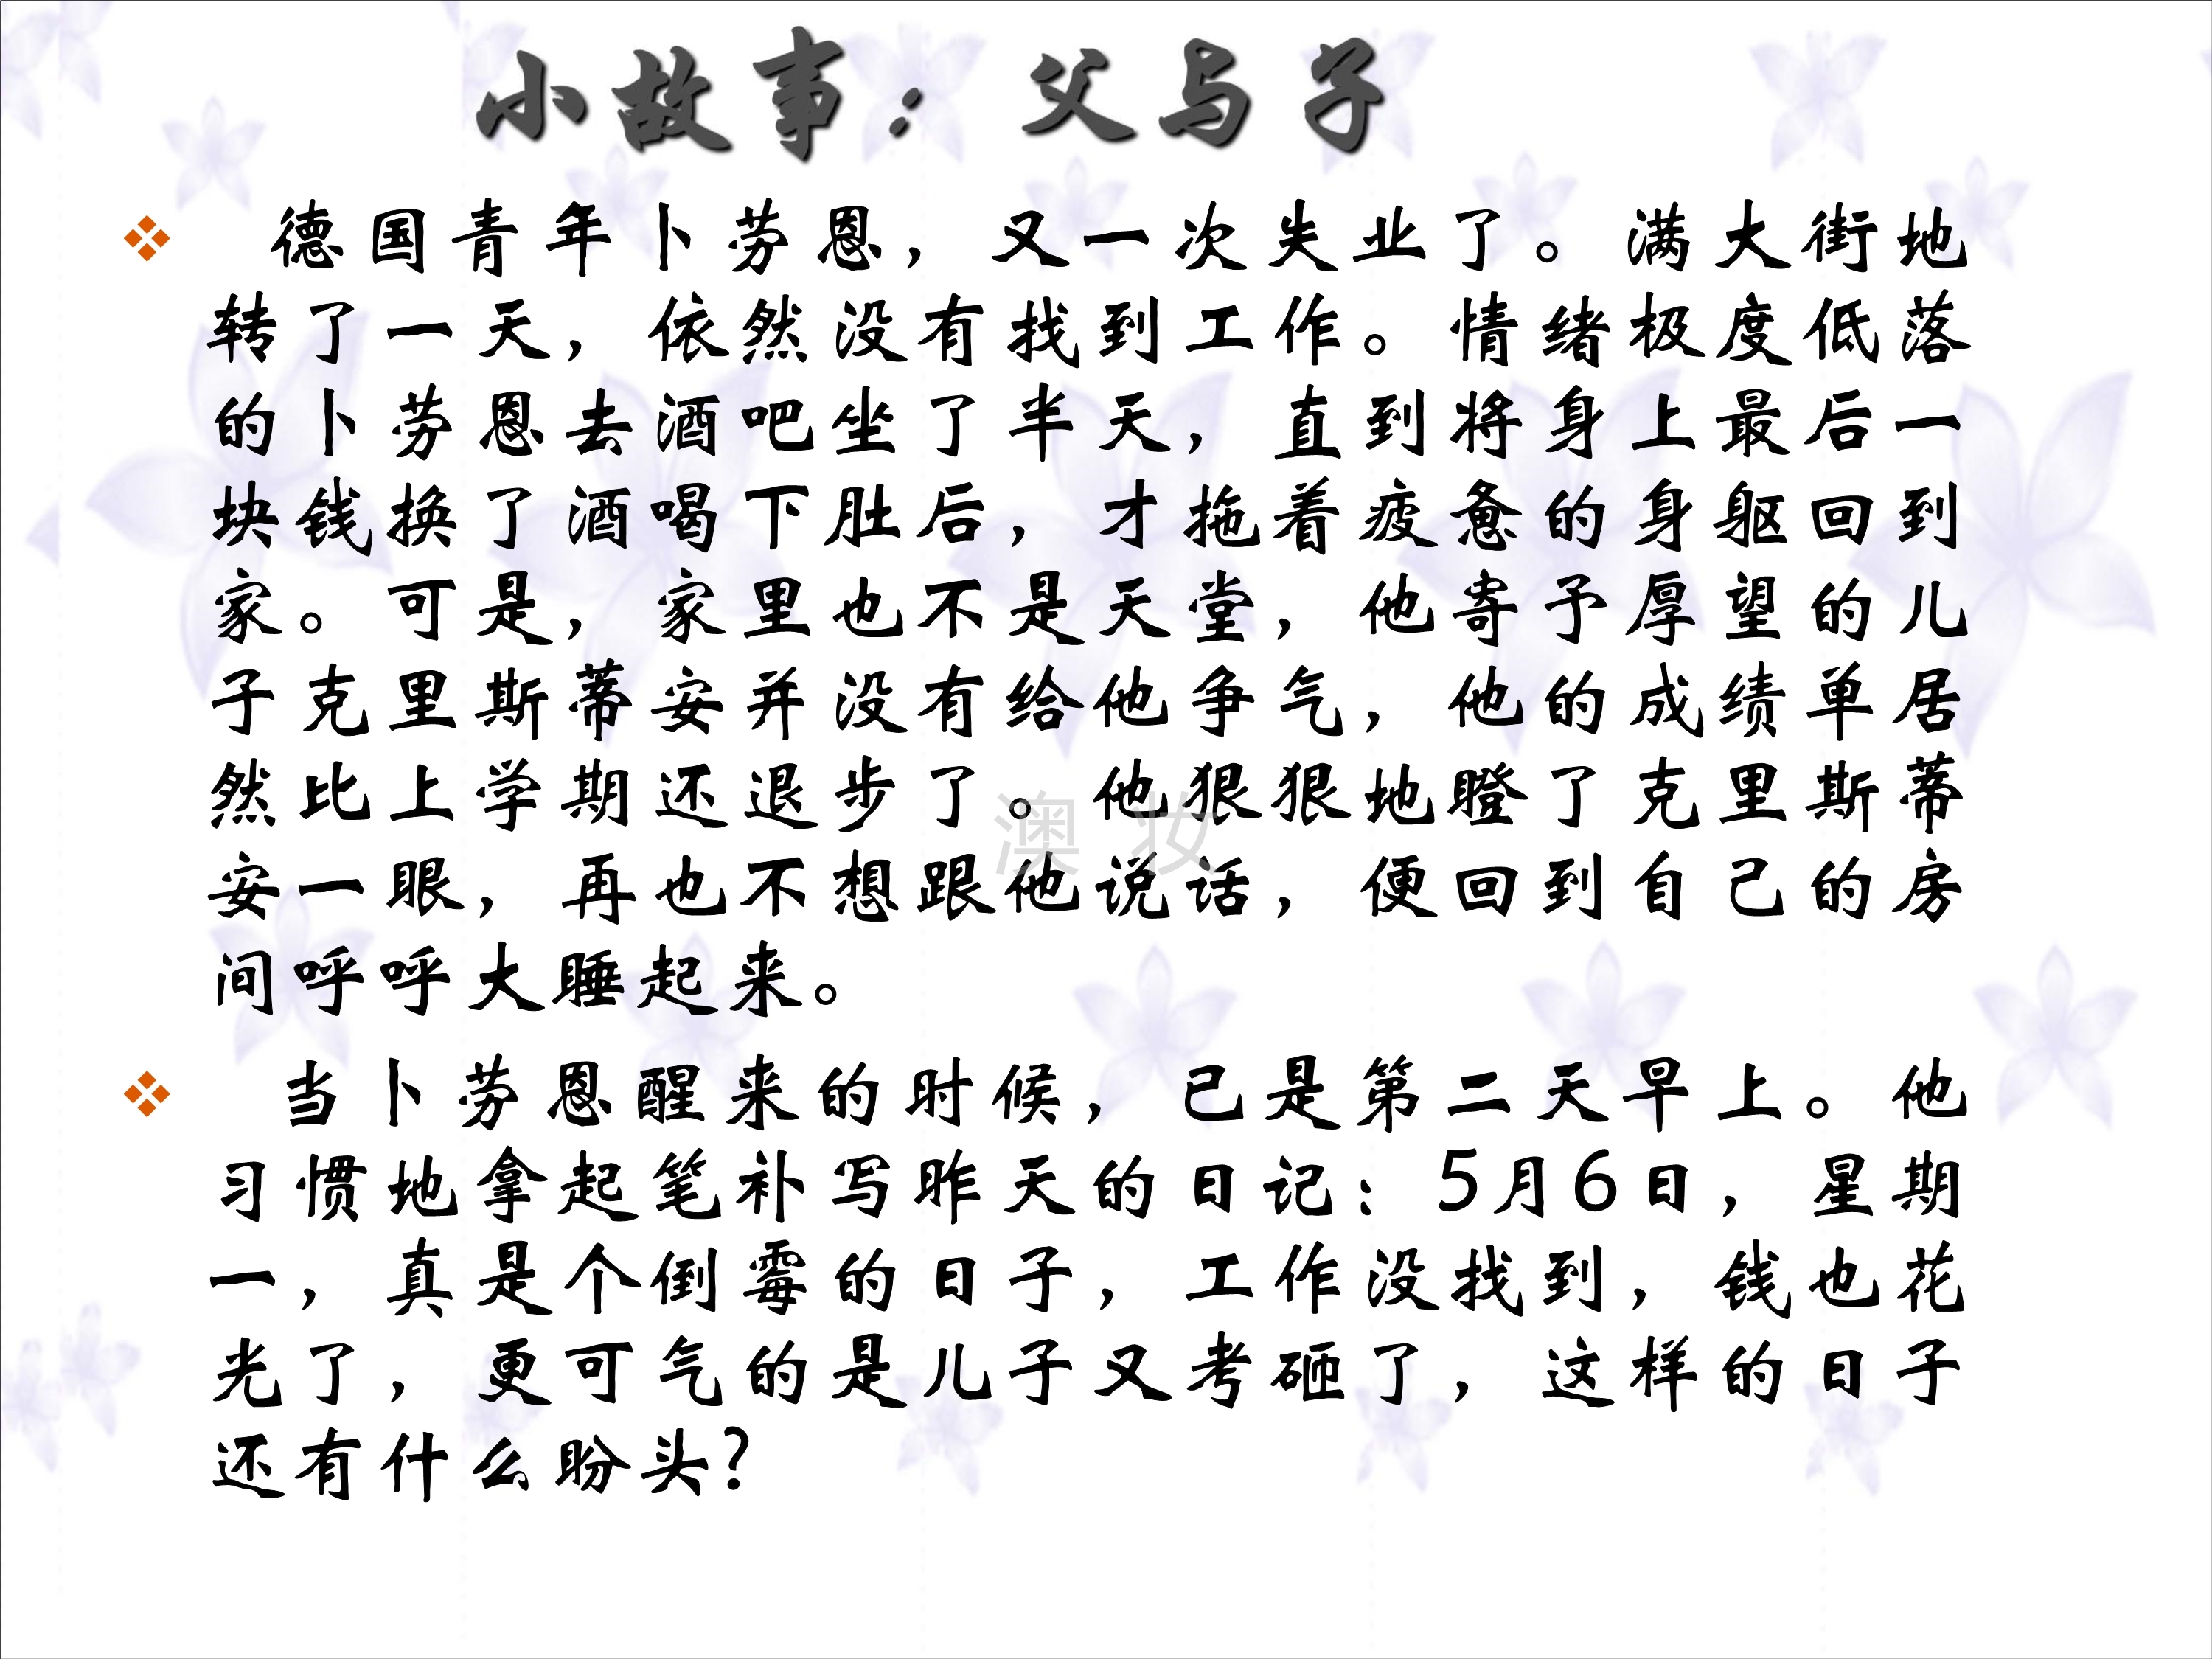 小故事：父与子
德国青年卜劳恩，又一次失业了。满大街地
转了一天，依然没有找到工作。情绪极度低落
的卜劳恩去酒吧坐了半天，直到将身上最后一
块钱换了酒喝下肚后，才拖着疲惫的身躯回到
家。可是，家里也不是天堂，他寄予厚望的儿
子克里斯蒂安并没有给他争气，他的成绩单居
然比上学期还退步了。他狠狠地瞪了克里斯蒂
安一眼，再也不想跟他说话，便回到自己的房
间呼呼大睡起来。
当卜劳恩醒来的时候，已是第二天早上。他
习惯地拿起笔补写昨天的日记：5月6日，星期
一，真是个倒霉的日子，工作没找到，钱也花
光了，更可气的是儿子又考砸了，这样的日子
还有什么盼头?
澳妆